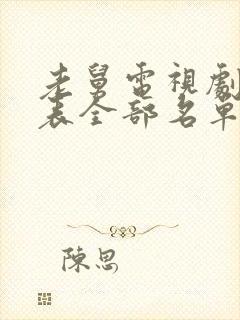 老舅電視劇
表全部名單
陳思